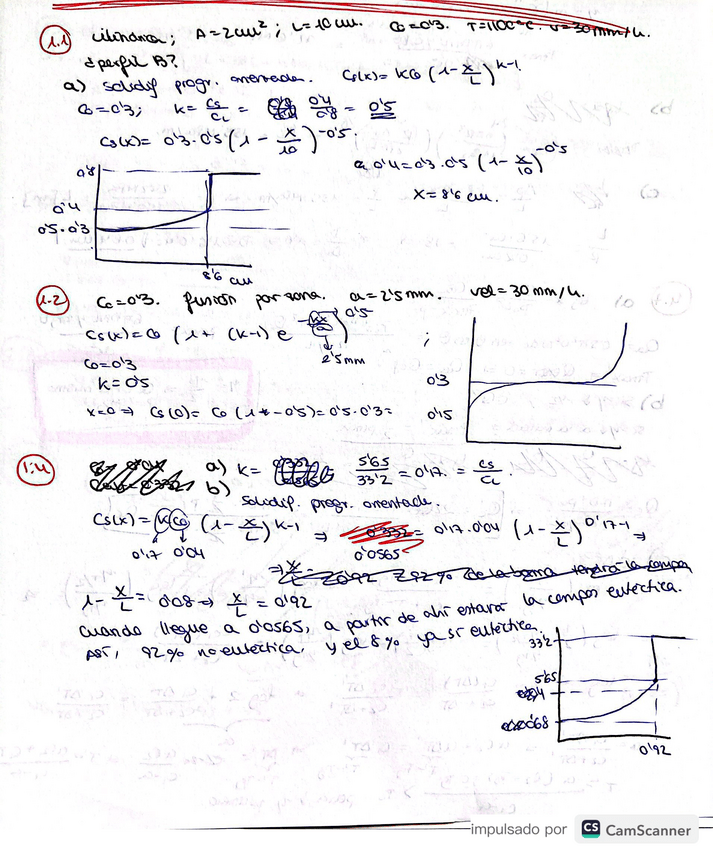 1.1 cilíndrica; A=2cm²; L=10 cm. C0=0'3. T=1100°C. v=30mm/h.
¿perfil B?
a) solidif progr. orientada. Cs(x)= KC0 (1-x/L)^k-1
C0=0'3; k=Cs/CL = 0'4/0'8 = 0'5
Cs(x)= 0'3·0'5(1 - x/10)^-0'5.
0'4=0'3·0'5 (1-x/10)^-0'5
X=8'6 cm.
0'8
0'4
0'5·0'3
8'6 cm
1.2 C0=0'3. fusión por zona. a=2'5mm. vel=30mm/h.
Cs(x)=C0 (1+ (k-1) e^-kx/a) 0'5 ;
2'5mm
C0=0'3
K=0'5
x=0 ⇒ Cs(0)= C0 (1+-0'5)=0'5·0'3=
0'3
0'15
1.4 a) k= 5'65/33'2 = 0'17. = Cs/CL.
b) solidif. progr. orientada.
Cs(x)= KC0 (1-x/L)^k-1 ⇒ = 0'17·0'04 (1-x/L)^0'17-1 ⇒
0'17 0'04 0'0565
1-x/L = 0'08 ⇒ x/L = 0'92
Cuando llegue a 0'0565, a partir de ahí estará la compos eutéctica.
Así, 92% no eutéctica, y el 8% ya sí eutéctica.
33'2
5'65
0'68
0'92
impulsado por CS CamScanner